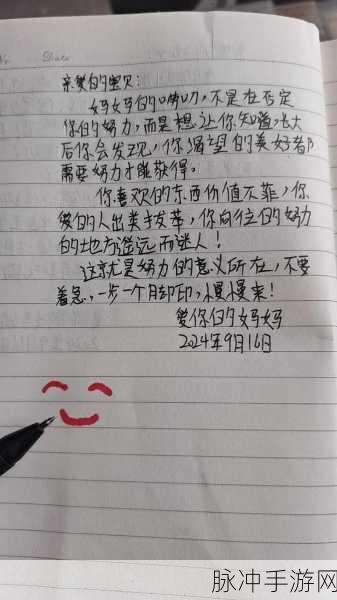 No.
Date
亲爱的宝贝:
妈妈的唠叨,不是在否定
你的努力,而是想让你知道,长大
后你会发现,你渴望的美好都
需要努力才能获得。
你喜欢的东西价值不菲,你
爱的人出类拔萃,你向往的
的地方遥远而迷人!
这就是努力的意义所在,不要
着急,一步一个脚印,慢慢来!
爱你的妈妈
2024年9月16日
脉冲手游网